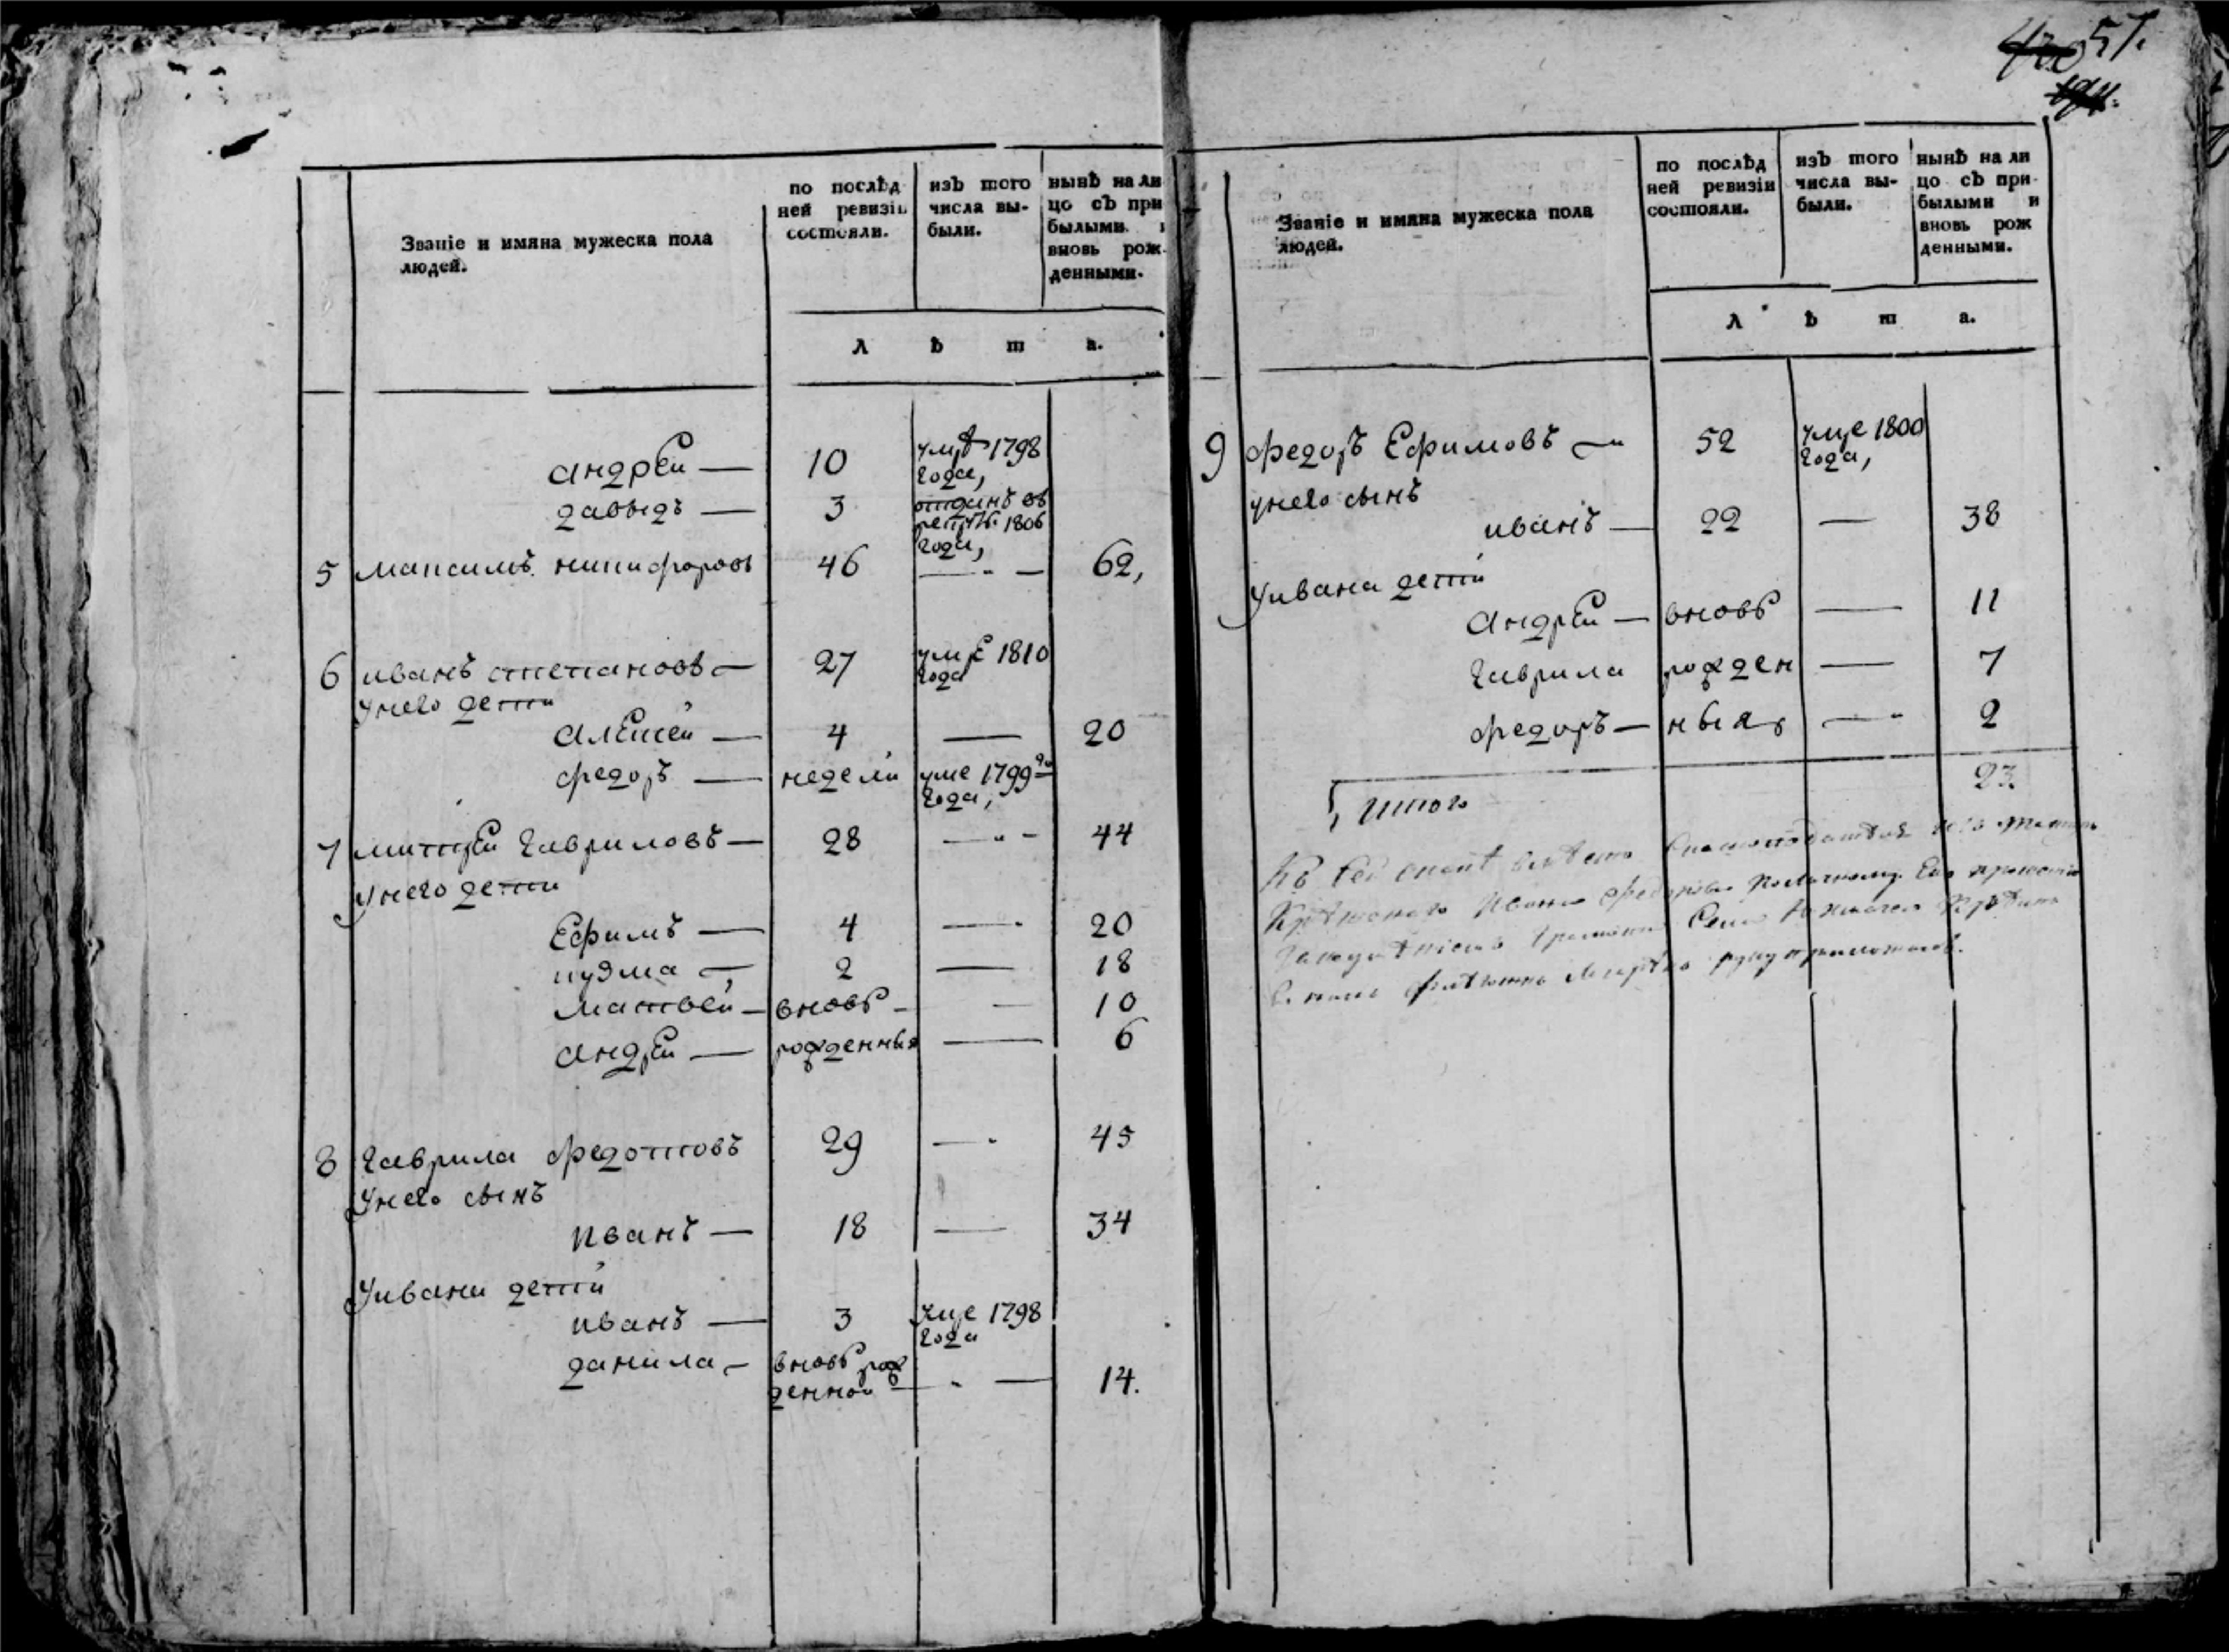 57.
Званіе и имяна мужеска пола
людей.
по послѣд
ней ревизіи
состояли.
изЪ того
числа вы-
были.
нынѣ на ли
цо сЪ при
былыми и
вновь рож
денными.
Л ѣ т а.
андрей — 10 умре 1798
года,
давыдъ — 3 отданъ въ
рекруты 1806
года,
5 максимъ никифоровъ 46 — 62,
6 иванъ степановъ — 27 умре 1810
года
унего дети
алексей — 4 — 20
федоръ — недели умре 1799го
года,
7 митрей гавриловъ — 28 — 44
унего дети
Ефимъ — 4 — 20
кузма — 2 — 18
матвей — вновь — 10
андрей — рожденныя — 6
8 гаврила федотовъ 29 — 45
унего сынъ
иванъ — 18 — 34
уивана дети
иванъ — 3 умре 1798
года
данила — вновь рож
денной — 14.
Званіе и имяна мужеска пола
людей.
по послѣд
ней ревизіи
состояли.
изЪ того
числа вы-
были.
нынѣ на ли
цо сЪ при
былыми и
вновь рож
денными.
Л ѣ т а.
9 федоръ Ефимовъ — 52 умре 1800
года,
унего сынъ
иванъ — 22 — 38
уивана дети
андрей — вновь — 11
гаврила рожден — 7
федоръ — ныя — 2
итого 23.
Къ сей вместо
Ивана по личному Его прошению
Села
руку приложилъ.